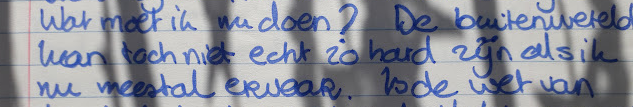 Wat moet ik nu doen? De buitenwereld
kan toch niet echt zo hard zijn als ik
nu meestal ervaar. Is de wet van